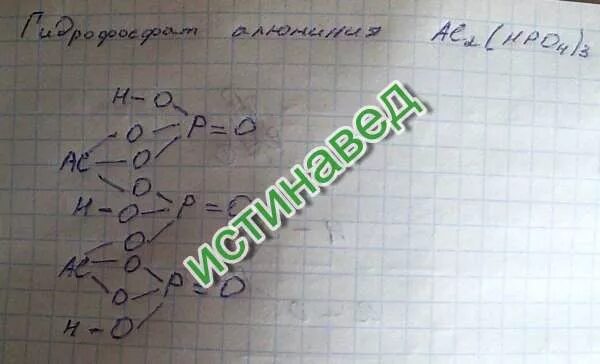 Гидрофосфат алюминия Al₂(HPO₄)₃
H-O
O P=O
Al O
O
H-O P=O
O
Al O
O P=O
H-O
истинавед